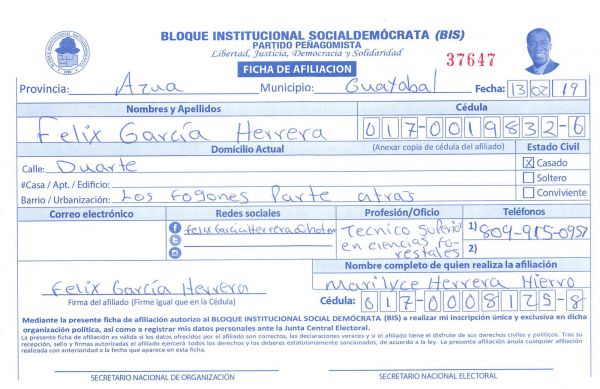 BLOQUE INSTITUCIONAL SOCIALDEMÓCRATA (BIS)
PARTIDO PEÑAGOMISTA
Libertad, Justicia, Democracia y Solidaridad
37647
FICHA DE AFILIACION
Provincia: Azua Municipio: Guayabal Fecha: 13 02 19
Nombres y Apellidos Cédula
Felix García Herrera 017-0019832-6
Domicilio Actual (Anexar copia de cédula del afiliado) Estado Civil
Calle: Duarte X Casado
#Casa / Apt. / Edificio: Soltero
Barrio / Urbanización: Los Fogones Parte atras Conviviente
Correo electrónico Redes sociales Profesión/Oficio Teléfonos
felixGarciaHerrera@hotm Tecnico Superio 1) 809-915-0957
en ciencias fo- 2)
restales
Nombre completo de quien realiza la afiliación
Felix García Herrera Marilyce Herrera Hierro
Firma del afiliado (Firme igual que en la Cédula) Cédula: 017-0008125-8
Mediante la presente ficha de afiliación autorizo al BLOQUE INSTITUCIONAL SOCIAL DEMÓCRATA (BIS) a realizar mi inscripción única y exclusiva en dicha
organización política, así como a registrar mis datos personales ante la Junta Central Electoral.
La presente ficha de afiliación es valida si los datos ofrecidos por el afiliado son correctos, las declaraciones veraces y si el afiliado tiene el disfrute de sus derechos civiles y políticos. Tras su
recepción, sello y firmas autorizadas el afiliado ejercerá todos los derechos y los deberes estatutariamente sancionados, de acuerdo a la ley. La presente afiliación anula cualquier afiliación
realizada con anterioridad a la fecha que aparece en esta ficha.
SECRETARIO NACIONAL DE ORGANIZACIÓN SECRETARIO NACIONAL ELECTORAL